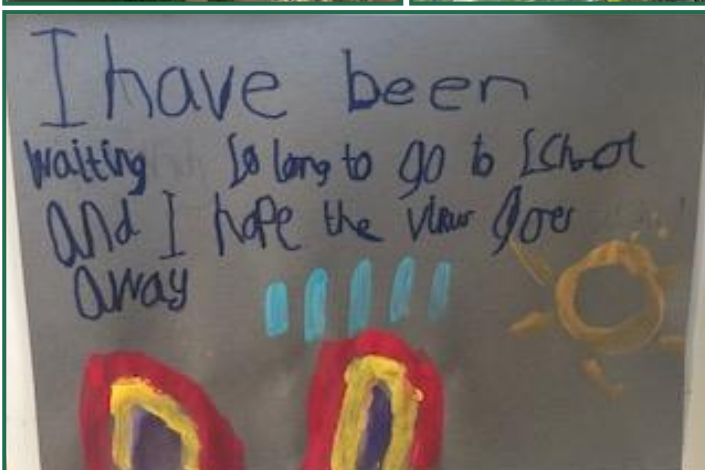 I have been
waiting so long to go to school
and I hope the virus goes
away